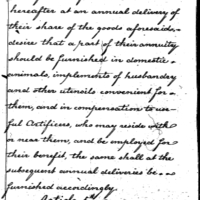 hereafter at an annual delivery of
their share of the goods aforesaid,
desire that a part of their annuity
should be furnished in domestic
animals, implements of husbandry
and other utensils convenient for
them, and in compensation to use-
ful Artificers, who may reside with
or near them, and be employed for
their benefit, the same shall at the
subsequent annual deliveries be
furnished accordingly.
Article 5th